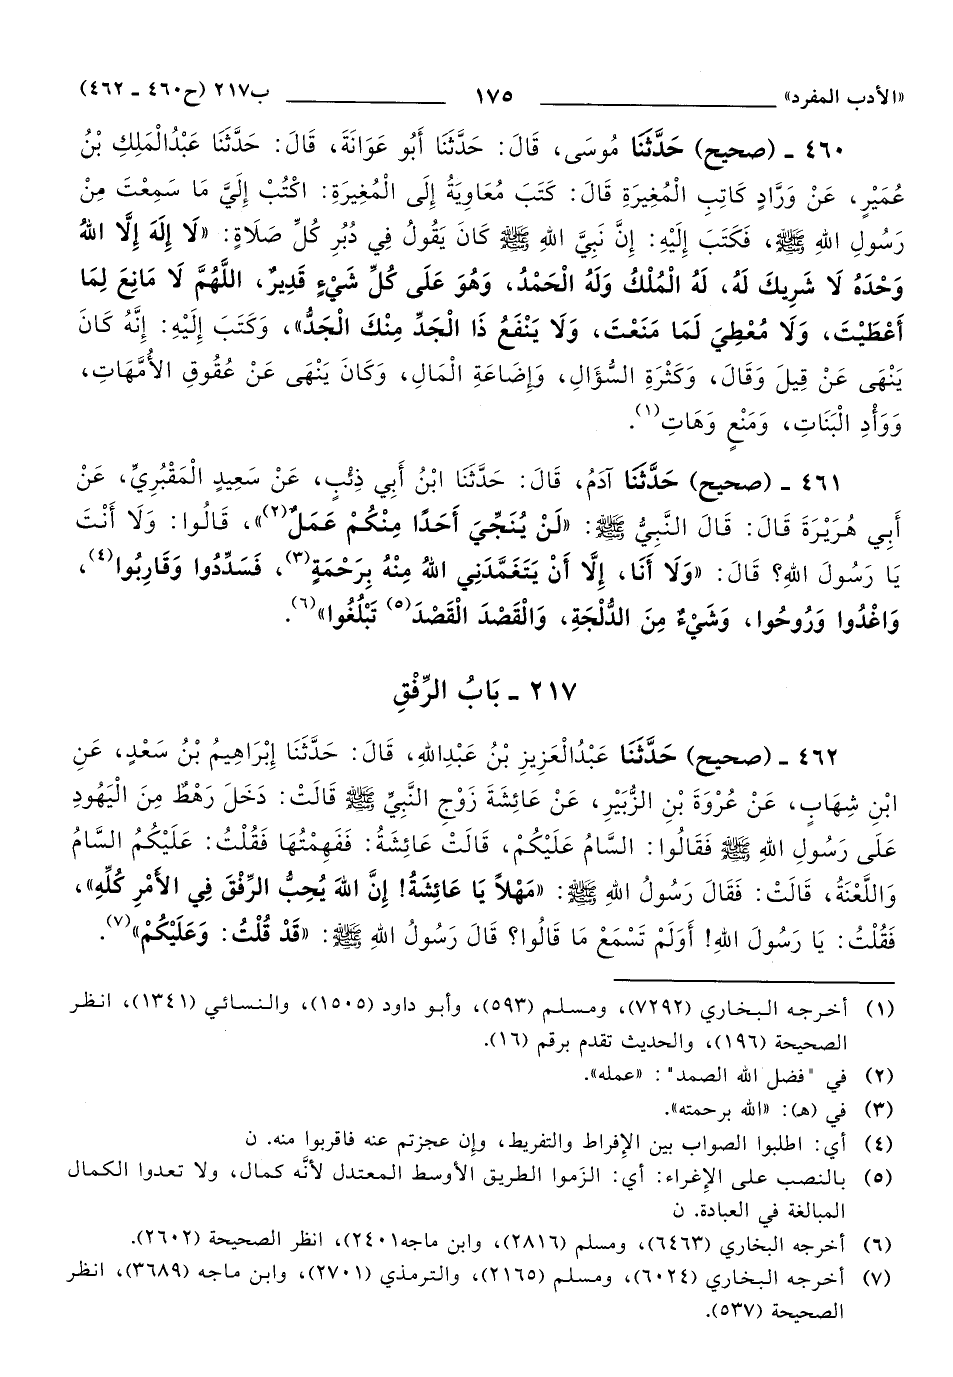 «الأدب المفرد» ١٧٥ ب٢١٧ (ح٤٦٠ - ٤٦٢)
٤٦٠ - (صحيح) حَدَّثَنَا مُوسَى، قَالَ: حَدَّثَنَا أَبُو عَوَانَةَ، قَالَ: حَدَّثَنَا عَبْدُالْمَلِكِ بْنُ
عُمَيْرٍ، عَنْ وَرَّادٍ كَاتِبِ الْمُغِيرَةِ قَالَ: كَتَبَ مُعَاوِيَةُ إِلَى الْمُغِيرَةِ: اكْتُبْ إِلَيَّ مَا سَمِعْتَ مِنْ
رَسُولِ اللهِ ﷺ، فَكَتَبَ إِلَيْهِ: إِنَّ نَبِيَّ اللهِ ﷺ كَانَ يَقُولُ فِي دُبُرِ كُلِّ صَلَاةٍ: «لَا إِلَهَ إِلَّا اللهُ
وَحْدَهُ لَا شَرِيكَ لَهُ، لَهُ الْمُلْكُ وَلَهُ الْحَمْدُ، وَهُوَ عَلَى كُلِّ شَيْءٍ قَدِيرٌ، اللَّهُمَّ لَا مَانِعَ لِمَا
أَعْطَيْتَ، وَلَا مُعْطِيَ لَمَا مَنَعْتَ، وَلَا يَنْفَعُ ذَا الْجَدِّ مِنْكَ الْجَدُّ»، وَكَتَبَ إِلَيْهِ: إِنَّهُ كَانَ
يَنْهَى عَنْ قِيلَ وَقَالَ، وَكَثْرَةِ السُّؤَالِ، وَإِضَاعَةِ الْمَالِ، وَكَانَ يَنْهَى عَنْ عُقُوقِ الأُمَّهَاتِ،
وَوَأْدِ الْبَنَاتِ، وَمَنْعٍ وَهَاتِ(١).
٤٦١ - (صحيح) حَدَّثَنَا آدَمُ، قَالَ: حَدَّثَنَا ابْنُ أَبِي ذِئْبٍ، عَنْ سَعِيدٍ الْمَقْبُرِيِّ، عَنْ
أَبِي هُرَيْرَةَ قَالَ: قَالَ النَّبِيُّ ﷺ: «لَنْ يُنَجِّيَ أَحَدًا مِنْكُمْ عَمَلٌ(٢)»، قَالُوا: وَلَا أَنْتَ
يَا رَسُولَ اللهِ؟ قَالَ: «وَلَا أَنَا، إِلَّا أَنْ يَتَغَمَّدَنِي اللهُ مِنْهُ بِرَحْمَةٍ(٣)، فَسَدِّدُوا وَقَارِبُوا(٤)،
وَاغْدُوا وَرُوحُوا، وَشَيْءٌ مِنَ الدُّلْجَةِ، وَالْقَصْدَ الْقَصْدَ(٥) تَبْلُغُوا»(٦).
٢١٧ - بَابُ الرِّفْقِ
٤٦٢ - (صحيح) حَدَّثَنَا عَبْدُالْعَزِيزِ بْنُ عَبْدِاللهِ، قَالَ: حَدَّثَنَا إِبْرَاهِيمُ بْنُ سَعْدٍ، عَنِ
ابْنِ شِهَابٍ، عَنْ عُرْوَةَ بْنِ الزُّبَيْرِ، عَنْ عَائِشَةَ زَوْجِ النَّبِيِّ ﷺ قَالَتْ: دَخَلَ رَهْطٌ مِنَ الْيَهُودِ
عَلَى رَسُولِ اللهِ ﷺ فَقَالُوا: السَّامُ عَلَيْكُمْ، قَالَتْ عَائِشَةُ: فَفَهِمْتُهَا فَقُلْتُ: عَلَيْكُمُ السَّامُ
وَاللَّعْنَةُ، قَالَتْ: فَقَالَ رَسُولُ اللهِ ﷺ: «مَهْلاً يَا عَائِشَةُ! إِنَّ اللهَ يُحِبُّ الرِّفْقَ فِي الأَمْرِ كُلِّهِ»،
فَقُلْتُ: يَا رَسُولَ اللهِ! أَوَلَمْ تَسْمَعْ مَا قَالُوا؟ قَالَ رَسُولُ اللهِ ﷺ: «قَدْ قُلْتُ: وَعَلَيْكُمْ»(٧).
(١) أخرجه البخاري (٧٢٩٢)، ومسلم (٥٩٣)، وأبو داود (١٥٠٥)، والنسائي (١٣٤١)، انظر
الصحيحة (١٩٦)، والحديث تقدم برقم (١٦).
(٢) في "فضل الله الصمد": «عمله».
(٣) في (هـ): «الله برحمته».
(٤) أي: اطلبوا الصواب بين الإفراط والتفريط، وإن عجزتم عنه فاقربوا منه. ن
(٥) بالنصب على الإغراء: أي: الزَموا الطريق الأوسط المعتدل لأنَّه كمال، ولا تعدوا الكمال
المبالغة في العبادة. ن
(٦) أخرجه البخاري (٦٤٦٣)، ومسلم (٢٨١٦)، وابن ماجه٢٤٠١)، انظر الصحيحة (٢٦٠٢).
(٧) أخرجه البخاري (٦٠٢٤)، ومسلم (٢١٦٥)، والترمذي (٢٧٠١)، وابن ماجه (٣٦٨٩)، انظر
الصحيحة (٥٣٧).